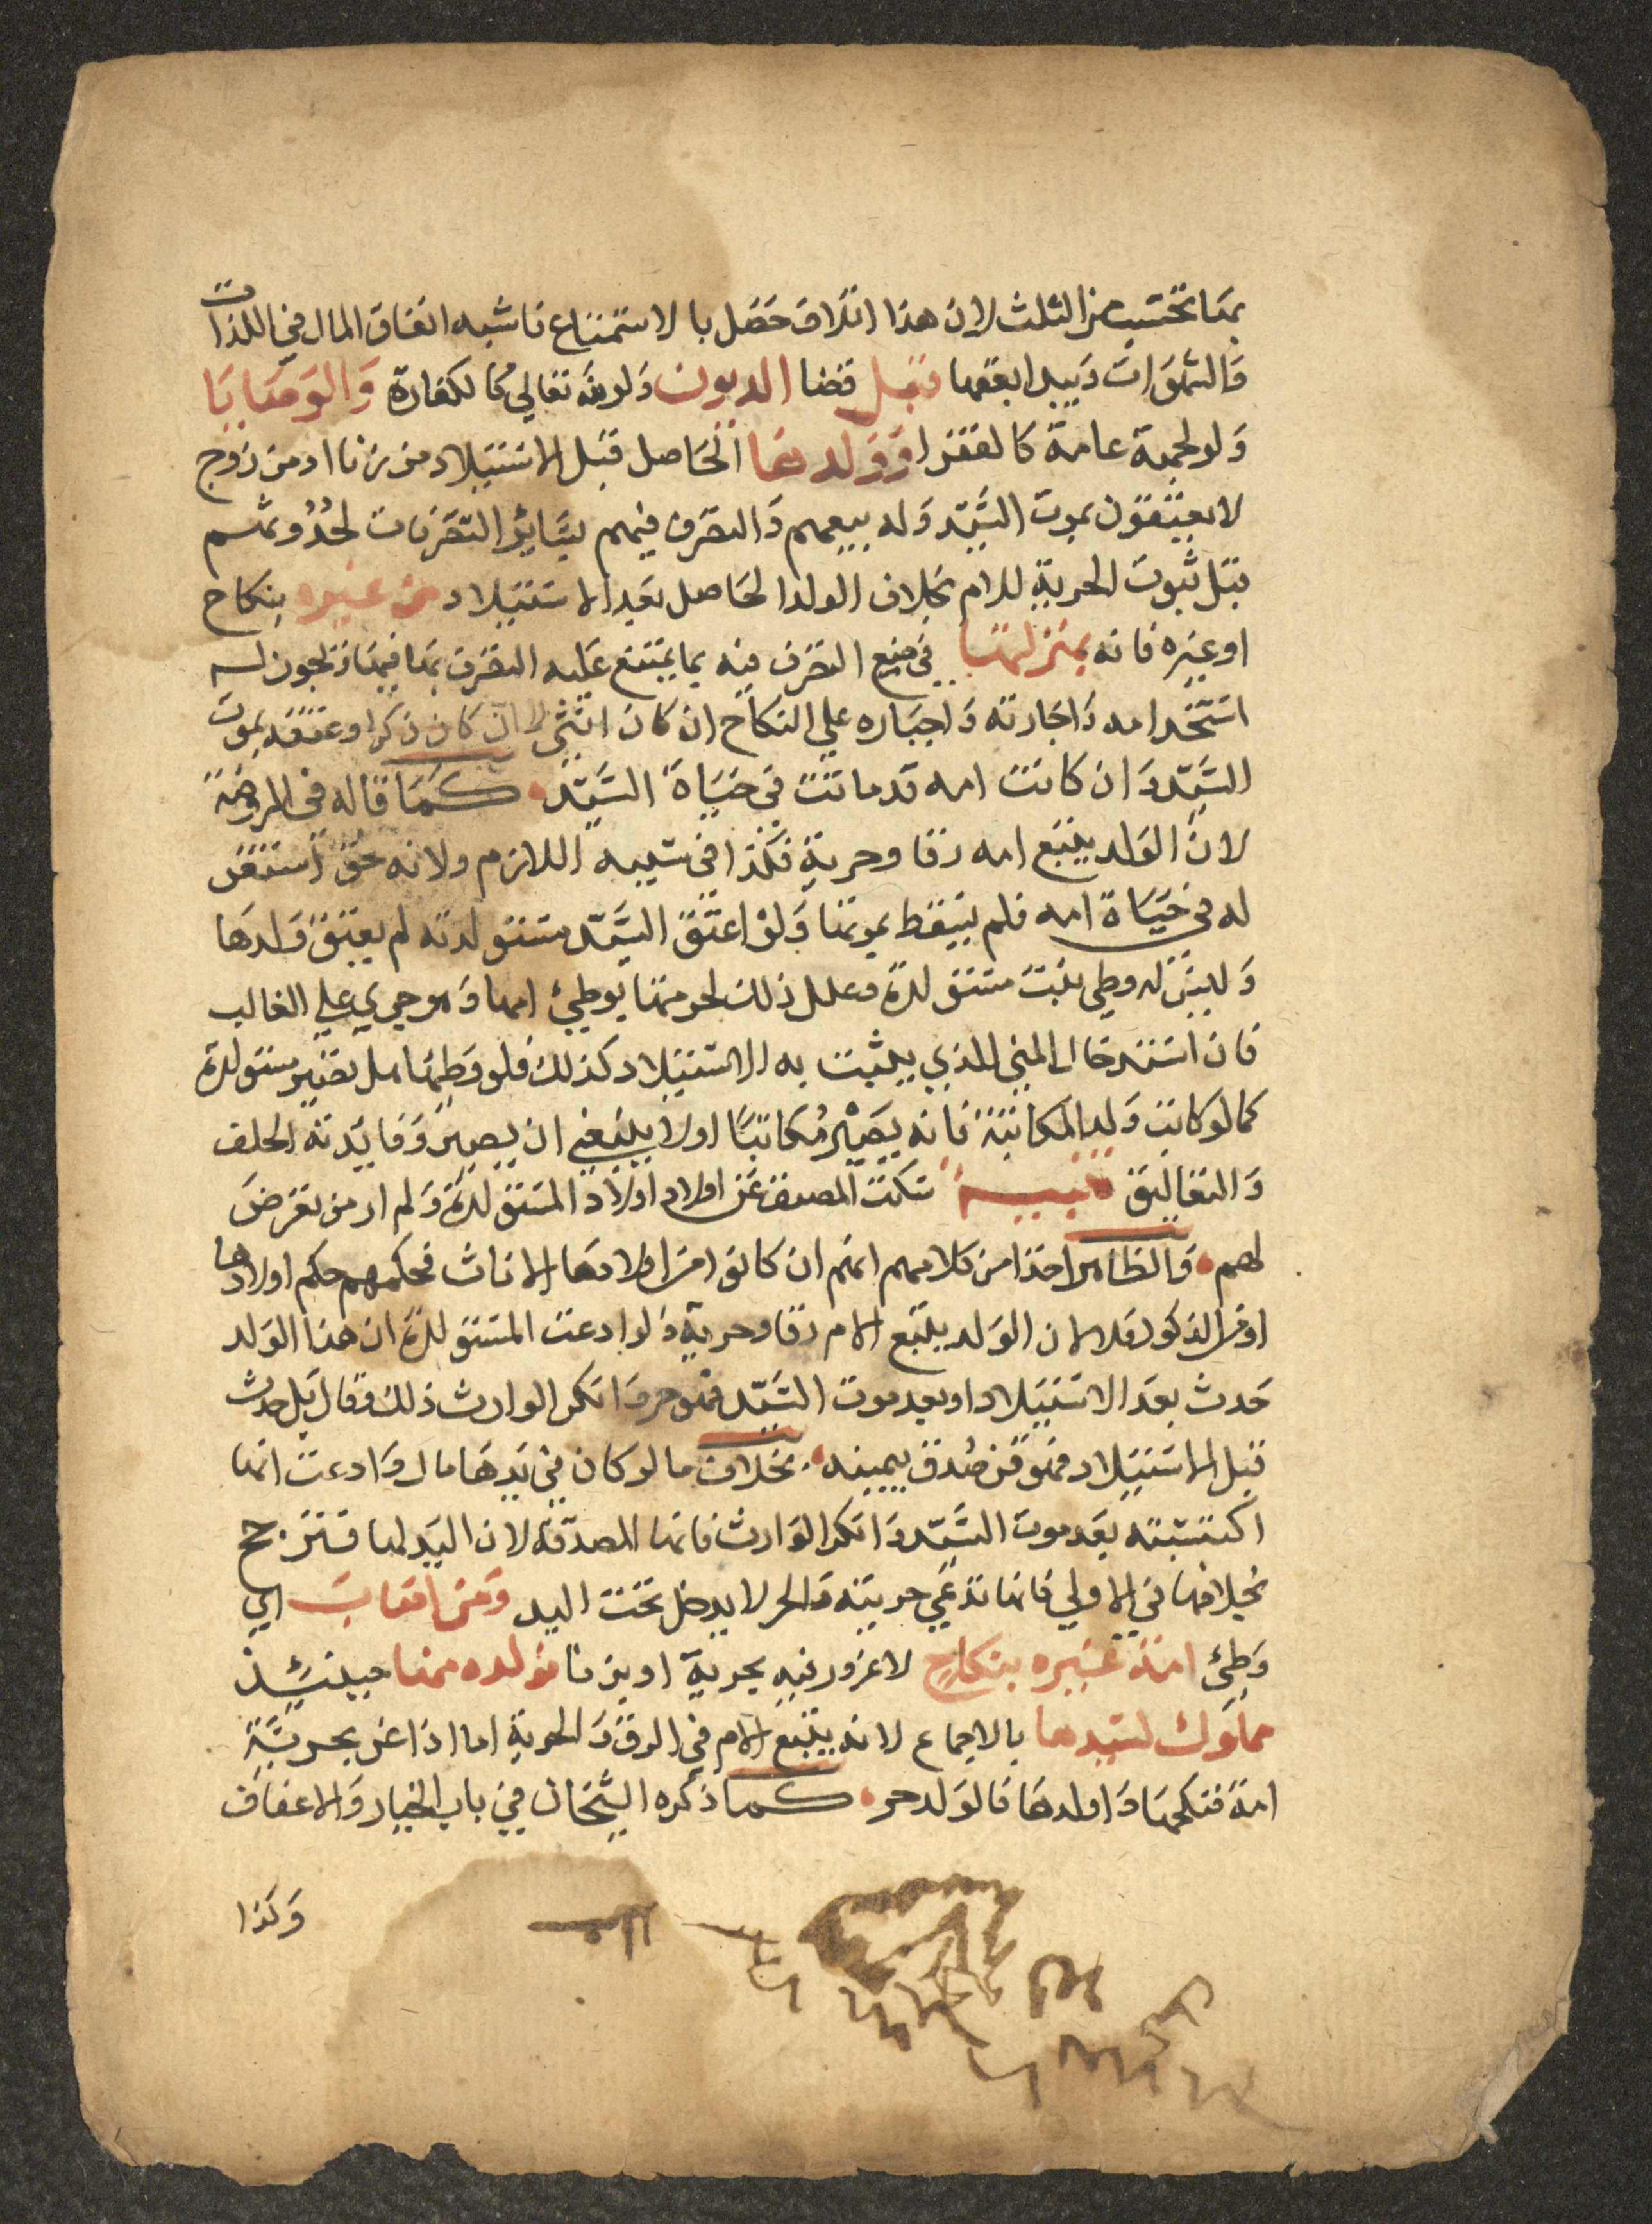 بما تحتسب من الثلث لان هذا اتلاف حصل بالاستمتاع فاشبه انفاق المال في اللذات
والشهوات ويبدا بعتقها قبل قضا الديون ولو لله تعالي كالكفارة والوصايا
ولو لجهة عامة كالفقرا وولدها الحاصل قبل الاستيلاد من زنا او من زوج
لا يعتقون بموت السيد وله بيعهم والتصرف فيهم بسائر التصرفات لحدوثهم
قبل ثبوت الحرية للام بخلاف الولد الحاصل بعد الاستيلاد من غيره بنكاح
او غيره فانه بمنزلتها في منع التصرف فيه بما يمتنع عليه التصرف به فيها ويجوز له
استخدامه واجارته واجباره علي النكاح ان كان انثي لا ان كان ذكرا وعتقه بموت
السيد وان كانت امه قد ماتت في حياة السيد كما قاله في الروضة
لان الولد يتبع امه رقا وحرية فكذا في سببه اللازم ولانه حق استقر
له في حياة امه فلم يسقط بموتها ولو اعتق السيد مستولدته لم يعتق ولدها
وليس له وطي بنت مستولدة وعلل ذلك لحرمتها بوطئ امها وهو جري علي الغالب
فان استدخال المني الذي يثبت به الاستيلاد كذلك فلو وطئها هل تصير مستولدة
كما لو كانت ولد المكاتبة فانه يصير مكاتبا اولا ينبغي ان يصير وفايدته الحلف
والتعاليق تنبيه سكت المصنف عن اولاد اولاد المستولدة ولم ار من تعرض
لهم والظاهر اخذا من كلامهم انهم ان كانوا من اولادها الاناث فحكمهم حكم اولادها
او من الذكور فلا لان الولد يتبع الام رقا وحرية ولو ادعت المستولدة ان هذا الولد
حدث بعد الاستيلاد او بعد موت السيد فهو حر وانكر الوارث ذلك وقال بل حدث
قبل الاستيلاد فهو قن صدق بيمينه بخلاف ما لو كان في يدها مال وادعت انها
اكتسبته بعد موت السيد وانكر الوارث فانها المصدقة لان اليد لها فترجح
بخلافها في الاولي فانها تدعي حريته والحر لا يدخل تحت اليد ومن اصاب اي
وطئ امة غيره بنكاح لا غرور فيه بحرية او بزنا فولده منها حينئذ
مملوك لسيدها بالاجماع لانه يتبع الام في الرق والحرية اما اذا غر بحرية
امة فنكحها واولدها فالولد حر كما ذكره الشيخان في باب الخيار والاعفاف
وكذا